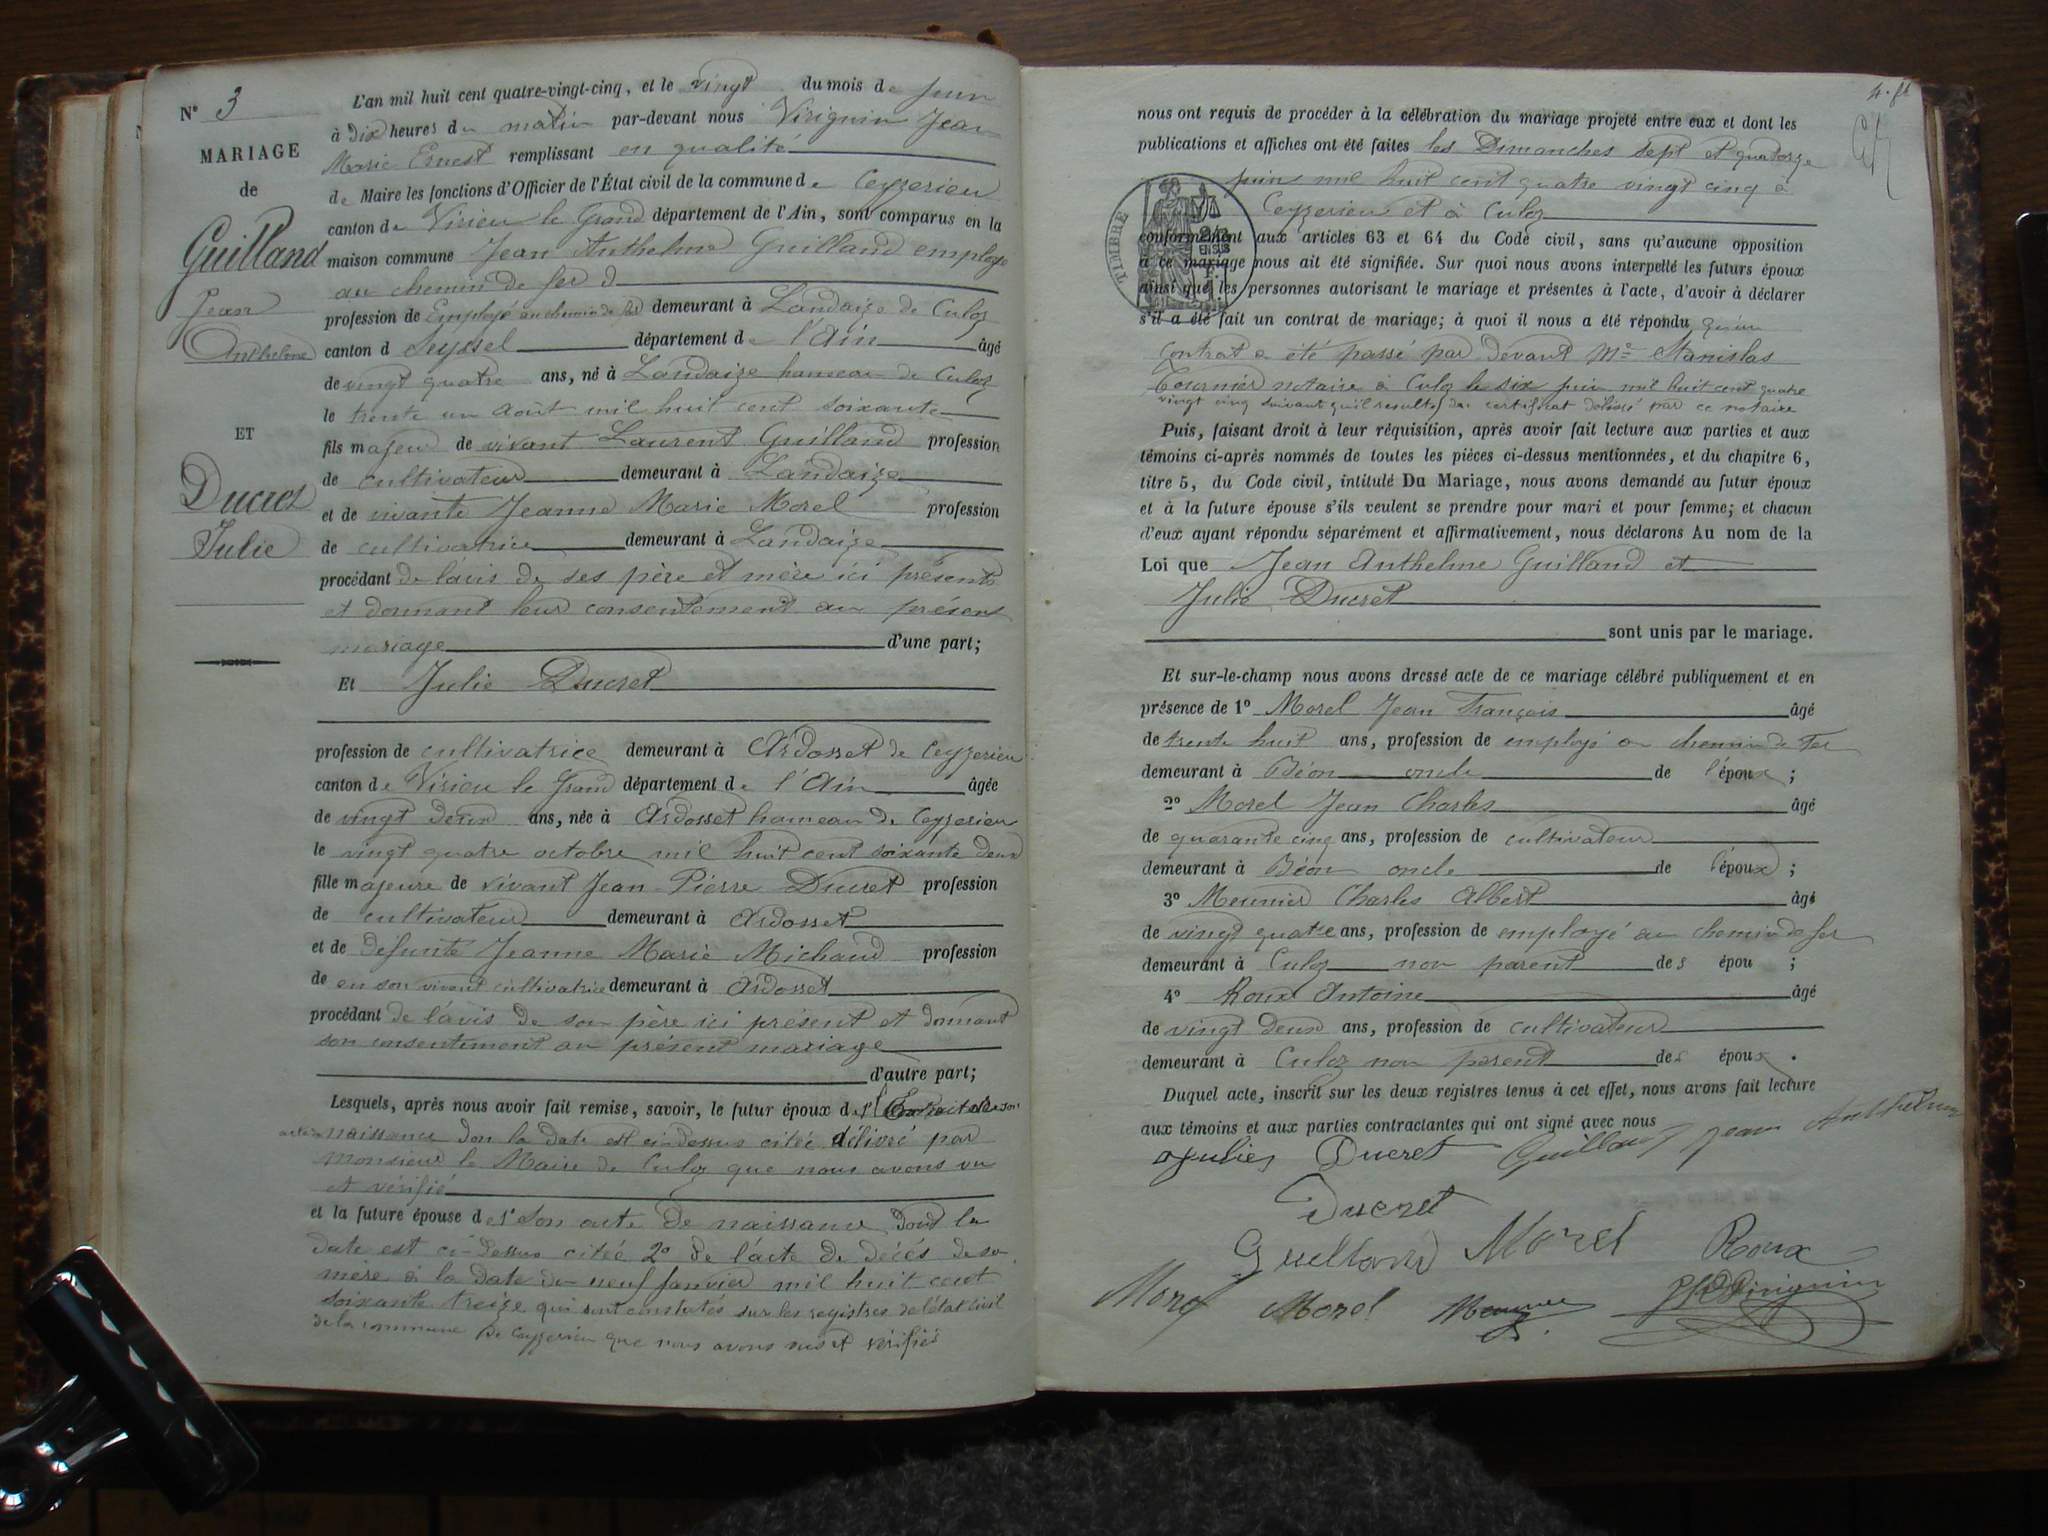 N° 3
MARIAGE
de
Guilland
Jean
Anthelme
ET
Ducret
Julie
L'an mil huit cent quatre-vingt-cinq, et le vingt du mois de Juin
à dix heures du matin par-devant nous Virignin Jean
Marie Ernest remplissant en qualité
de Maire les fonctions d'Officier de l'État civil de la commune de Ceyzerieu
canton de Virieu le Grand département de l'Ain, sont comparus en la
maison commune Jean Anthelme Guilland employé
au chemin de fer d
profession de Employé au chemin de fer demeurant à Landaize de Culoz
canton d Seyssel département de l'Ain âgé
de vingt quatre ans, né à Landaize hameau de Culoz
le trente un août mil huit cent soixante
fils majeur de vivant Laurent Guilland profession
de cultivateur demeurant à Landaize
et de vivante Jeanne Marie Morel profession
de cultivatrice demeurant à Landaize
procédant de l'avis de ses père et mère ici présents
et donnant leur consentement au présent
mariage d'une part;
Et Julie Ducret
profession de cultivatrice demeurant à Ardosset de Ceyzerieu
canton de Virieu le Grand département de l'Ain âgée
de vingt deux ans, née à Ardosset hameau de Ceyzerieu
le vingt quatre octobre mil huit cent soixante deux
fille majeure de vivant Jean Pierre Ducret profession
de cultivateur demeurant à Ardosset
et de défunte Jeanne Marie Michaud profession
de en son vivant cultivatrice demeurant à Ardosset
procédant de l'avis de son père ici présent et donnant
son consentement au présent mariage
d'autre part;
Lesquels, après nous avoir fait remise, savoir, le futur époux de l'Extrait de son
acte de naissance don la date est ci-dessus citée délivré par
monsieur le Maire de Culoz que nous avons vu
et vérifié
et la future épouse de 1° son acte de naissance dont la
date est ci-dessus citée 2° de l'acte de décès de sa
mère à la date du neuf Janvier mil huit cent
soixante treize qui sont constatés sur les registres de l'état civil
de la commune de Ceyzerieu que nous avons vus et vérifiés
nous ont requis de procéder à la célébration du mariage projeté entre eux et dont les
publications et affiches ont été faites les Dimanches sept et quatorze
juin mil huit cent quatre vingt cinq à
Ceyzerieu et à Culoz
TIMBRE
conformément aux articles 63 et 64 du Code civil, sans qu'aucune opposition
à ce mariage nous ait été signifiée. Sur quoi nous avons interpellé les futurs époux
ainsi que les personnes autorisant le mariage et présentes à l'acte, d'avoir à déclarer
s'il a été fait un contrat de mariage; à quoi il nous a été répondu qu'un
contrat a été passé par devant Me Stanislas
Tournier notaire à Culoz le six juin mil huit cent quatre
vingt cinq suivant qu'il resulte du certificat délivré par ce notaire
Puis, faisant droit à leur réquisition, après avoir fait lecture aux parties et aux
témoins ci-après nommés de toutes les pièces ci-dessus mentionnées, et du chapitre 6,
titre 5, du Code civil, intitulé Du Mariage, nous avons demandé au futur époux
et à la future épouse s'ils veulent se prendre pour mari et pour femme; et chacun
d'eux ayant répondu séparément et affirmativement, nous déclarons Au nom de la
Loi que Jean Anthelme Guilland et
Julie Ducret
sont unis par le mariage.
Et sur-le-champ nous avons dressé acte de ce mariage célébré publiquement et en
présence de 1° Morel Jean François âgé
de trente huit ans, profession de employé au chemin de fer
demeurant à Béon oncle de l'époux;
2° Morel Jean Charles âgé
de quarante cinq ans, profession de cultivateur
demeurant à Béon oncle de l'époux;
3° Meunier Charles Albert âgé
de vingt quatre ans, profession de employé au chemin de fer
demeurant à Culoz non parent des épou ;
4° Roux Antoine âgé
de vingt deux ans, profession de cultivateur
demeurant à Culoz non parent des époux.
Duquel acte, inscrit sur les deux registres tenus à cet effet, nous avons fait lecture
aux témoins et aux parties contractantes qui ont signé avec nous
Julie Ducret Guilland Jean Anthelme
Ducret
Guilland Morel Roux
Morel Morel Meunier Virignin